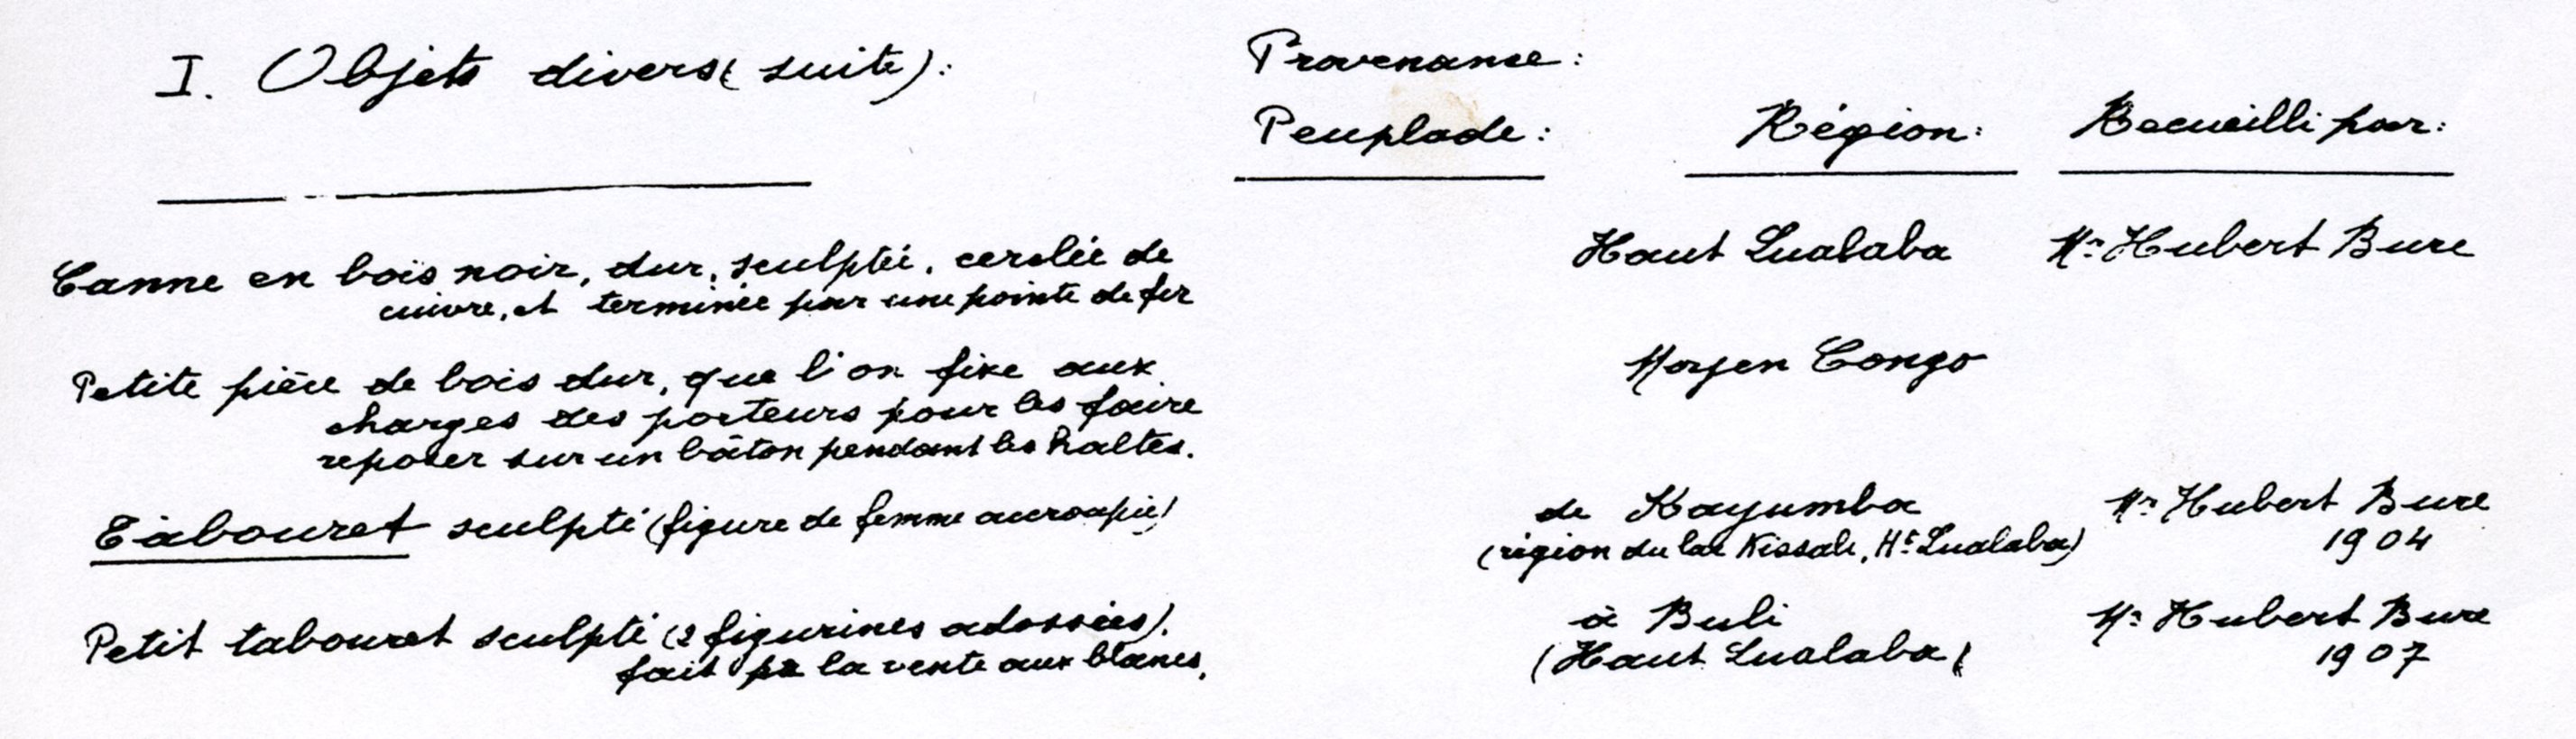 I. Objets divers (suite):
Provenance:
Peuplade:
Région:
Recueilli par:
Canne en bois noir, dur, sculptée, cerclée de
cuivre, et terminée par une pointe de fer
Haut Lualaba
Mr Hubert Bure
Petite pièce de bois dur, que l'on fixe aux
charges des porteurs pour les faire
reposer sur un bâton pendant les haltes.
Moyen Congo
Tabouret sculpté (figure de femme accroupie)
de Kayumba
(région du lac Kissale, Ht Lualaba)
Mr Hubert Bure
1904
Petit tabouret sculpté (2 figurines adossées).
fait pr la vente aux blancs.
à Buli
(Haut Lualaba)
Mr Hubert Bure
1907